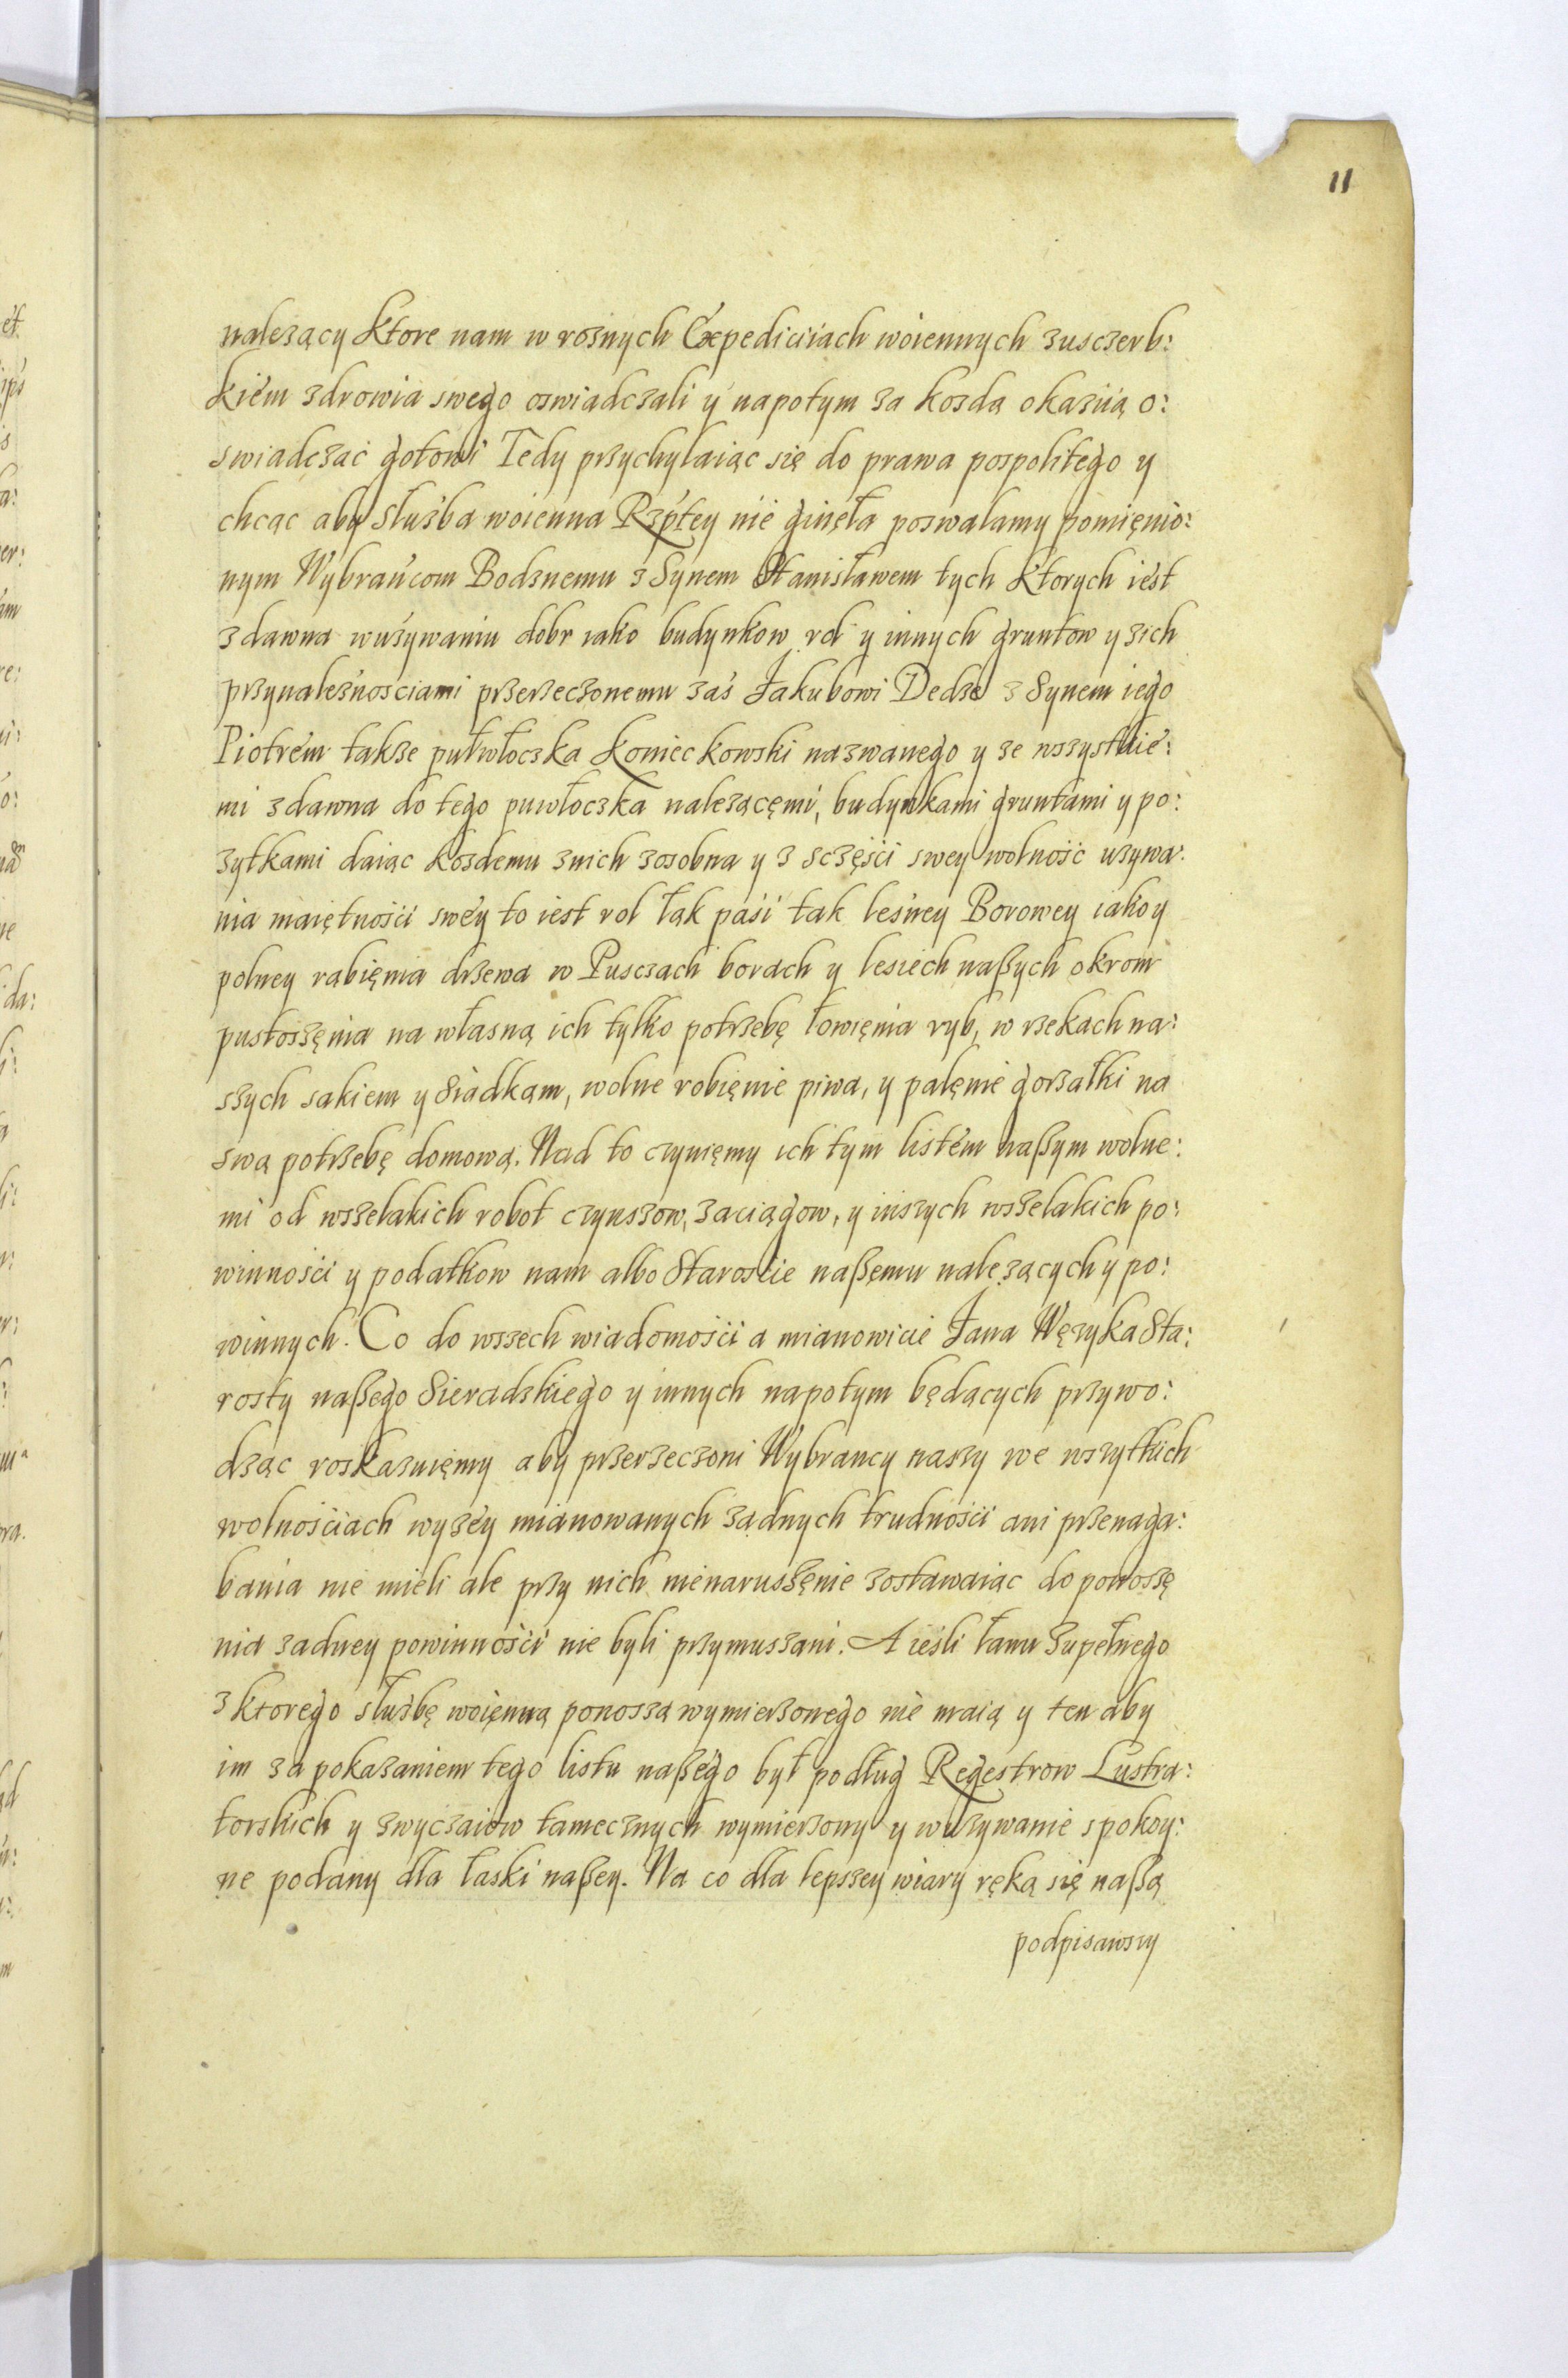 11
należący ktore nam w rożnych Expediciiach woiennych zusczerb:
kiem zdrowia swego oswiadczali y napotym za kozdą okaziią o:
swiadczać gotowi Tedy przychylaiąc się do prawa pospolitego y
chcąc aby służba woienna Rzptey nie ginęła pozwalamy pomięnio:
nym Wybrańcom Bodznemu z Synem Stanisławem tych ktorych iest
zdawna wużywaniu dobr iako budynkow rol y innych gruntow y zich
przynależnosciami przerzeczonemu zaś Jakubowi Dedze z Synem iego
Piotrem także pułwłoczka Konieckowski nazwanego y ze wszystkie:
mi zdawna do tego puwłoczka należącęmi, budynkami gruntami y po:
zytkami daiąc kozdemu znich zosobna y z sczęści swey wolność uzywa:
nia maiętności swey to iest rol łąk paśi tak leśney Borowey iako y
polney rąbięnia drzewa w Pusczach borach y lesiech naszych okrom
pustoszęnia na własną ich tylko potrzebę łowięnia ryb, w rzekach na:
szych sakiem y Siadkam, wolne robięnie piwa, y palęnie gorzałki na
swą potrzebę domową. Nad to czynięmy ich tym listem naszym wolne:
mi od wszelakich robot czynszow, zaciągow, y inszych wszelakich po:
winności y podatkow nam albo Staroście naszęmu należących y po:
winnych. Co do wszech wiadomości a mianowicie Jana Wężyka Sta:
rosty naszego Sieradzkiego y innych napotym będących przywo:
dząc roskazuięmy aby przerzeczoni Wybrancy naszy we wszytkich
wolnościach wyzey mianowanych żądnych trudności ani przenaga:
bania nie mieli ale przy nich nienaruszęnie zostawaiąc do ponoszę
nia żadney powinności nie byli przymuszani. A ieśli łanu zupełnego
z ktorego służbę woięnną ponoszą wymierzonego nie maią y ten aby
im za pokazaniem tego listu naszego był podług Regestrow Lustra:
torskich y zwyczaiow tamecznych wymierzony y wużywanie spokoy:
ne podany dla łaski naszey. Na co dla lepszey wiary ręką się naszą
podpisawszy